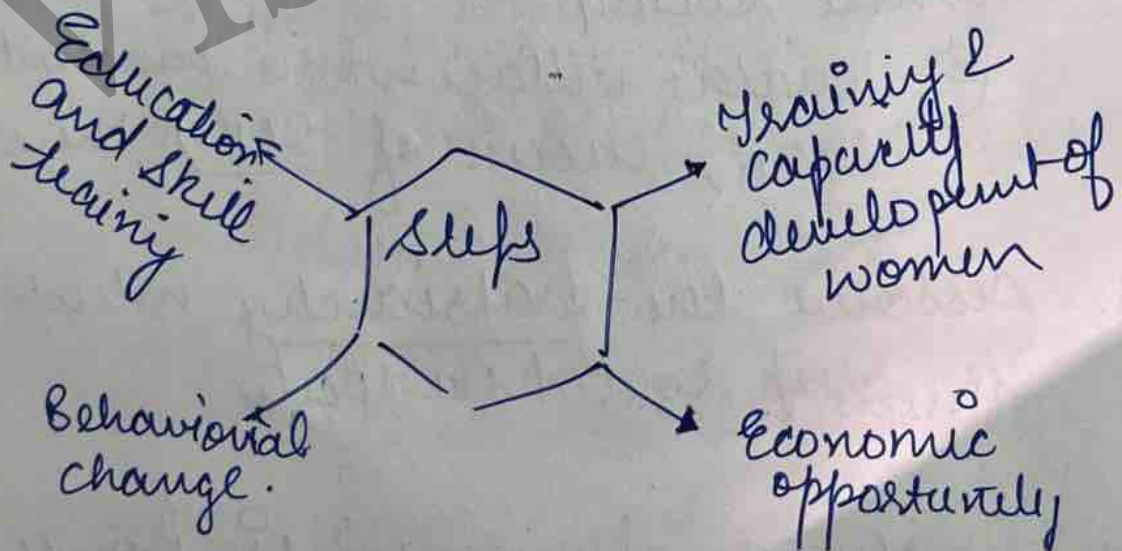 Education
and Skill
training
Steps
Training &
capacity
development of
women
Behaviorial
change.
Economic
opportunity